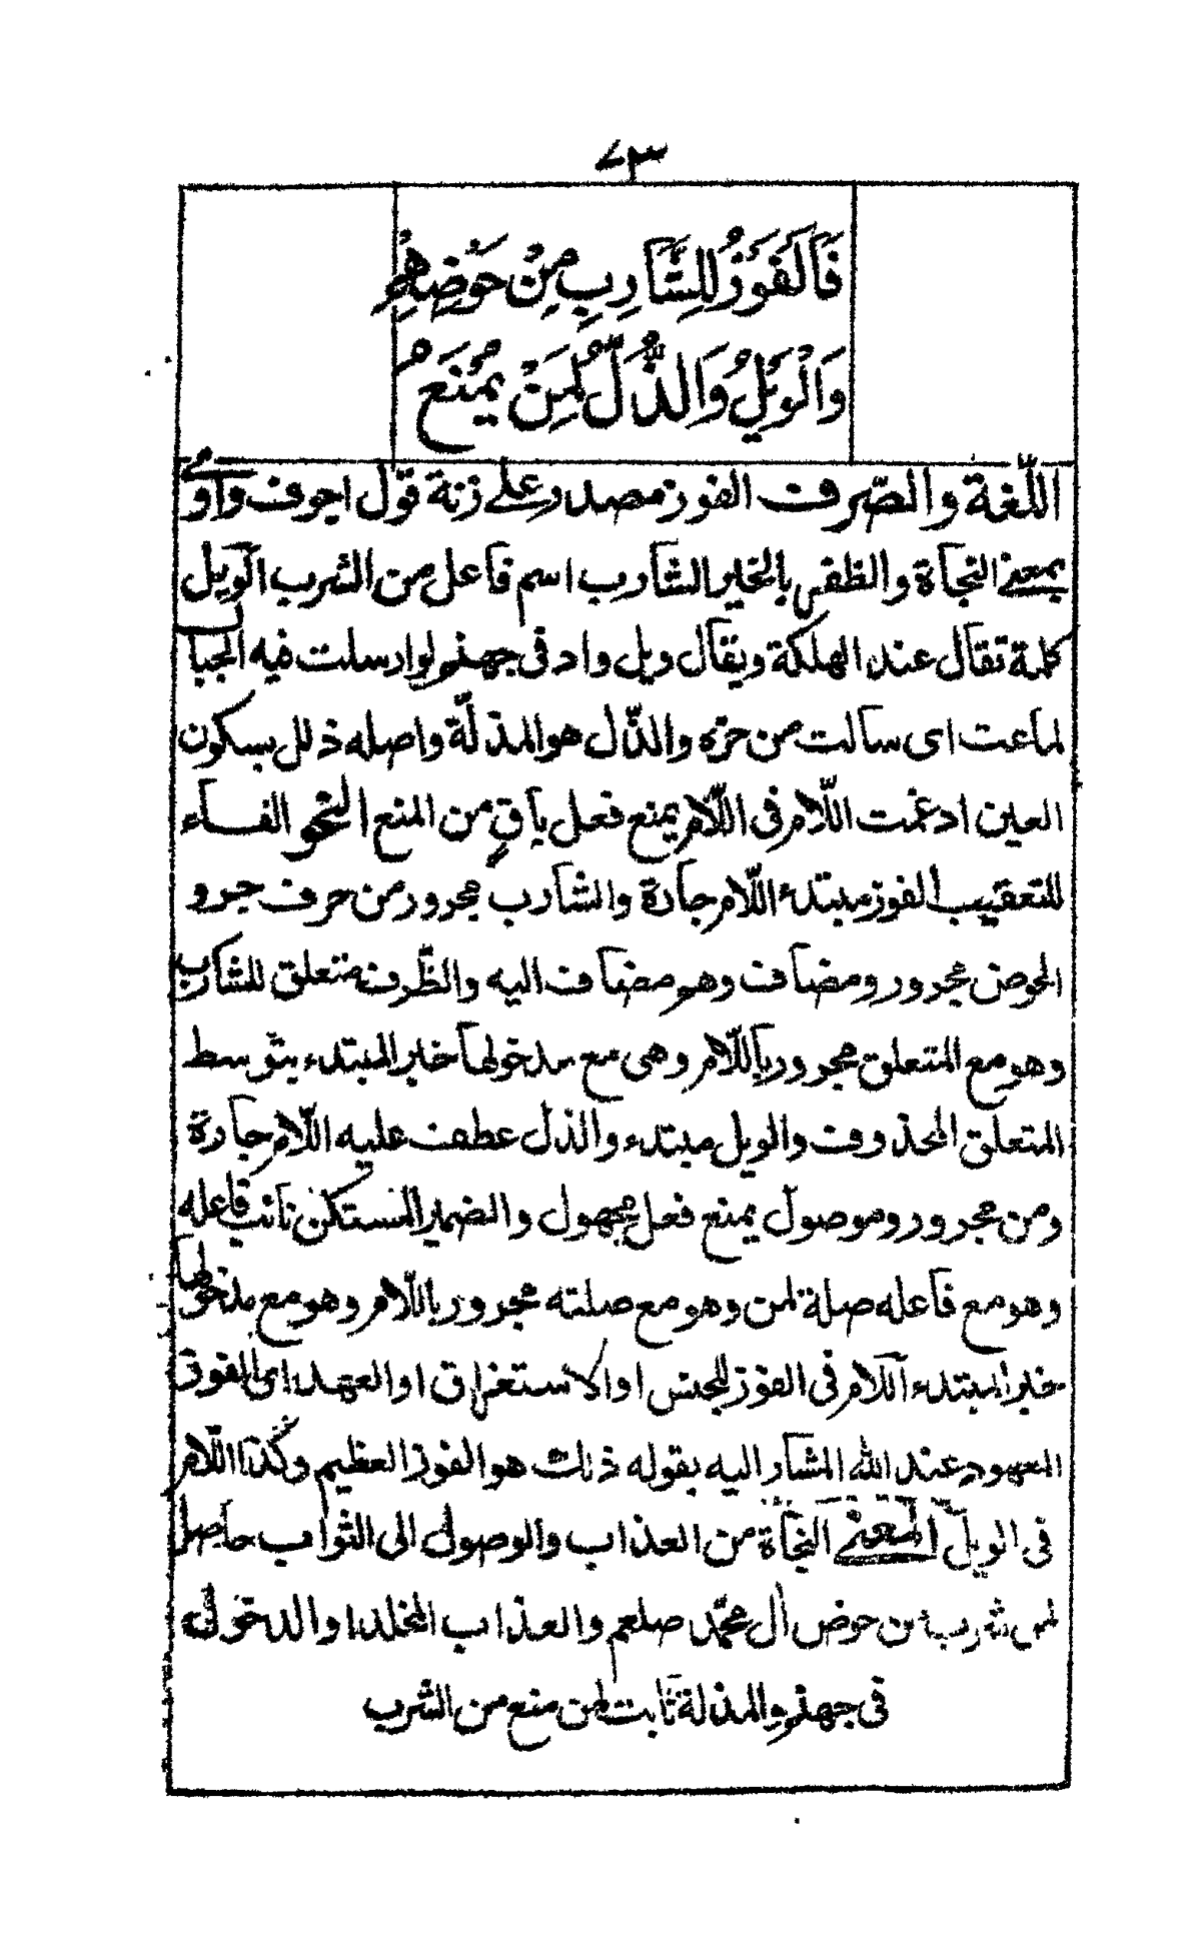 ٧٣
فَالْفَوْزُ لِلشَّارِبِ مِنْ حَوْضِهِمْ
وَالْوَيْلُ وَالذُّلُّ لِمَنْ يُمْنَعُ
اللّغة والصّرف الفوز مصدر على زنة قول اجوف واوى
بمعنى النجاة والظفر بالخير الشارب اسم فاعل من الشرب الويل
كلمة تقال عند الهلكة ويقال ويل واد فى جهنم لو ارسلت فيه الجبال
لماعت اى سالت من حرّه والذّل هو المذلّة واصله ذلل بسكون
العين ادغمت اللام فى اللّام يمنع فعل باقٍ من المنع النحو الفاء
للتعقيب الفوز مبتدء اللام جارة والشارب مجرور من حرف جر و
الحوض مجرور ومضاف وهم مضاف اليه والظّرف متعلق للشارب
وهو مع المتعلق مجرور باللّام وهى مع مدخولها خبر المبتدء بتوسط
المتعلق المحذوف والويل مبتدء والذل عطف عليه اللّام جارة
ومن مجرور وموصول يمنع فعل مجهول والضمير المستكن نائب فاعله
وهو مع فاعله صلة لمن وهو مع صلته مجرور باللّام وهو مع مدخولها
خبر المبتدء اللام فى الفوز للجنس او الاستغراق او العهد اى الفوز
المعهود عند الله المشار اليه بقوله ذلك هو الفوز العظيم وكذا اللّام
فى الويل المعنى النجاة من العذاب والوصول الى الثواب حاصل
لمن شرب من حوض آل محمّد صلعم والعذاب المخلد او الدخول
فى جهنم والمذلة ثابت لمن منع من الشرب